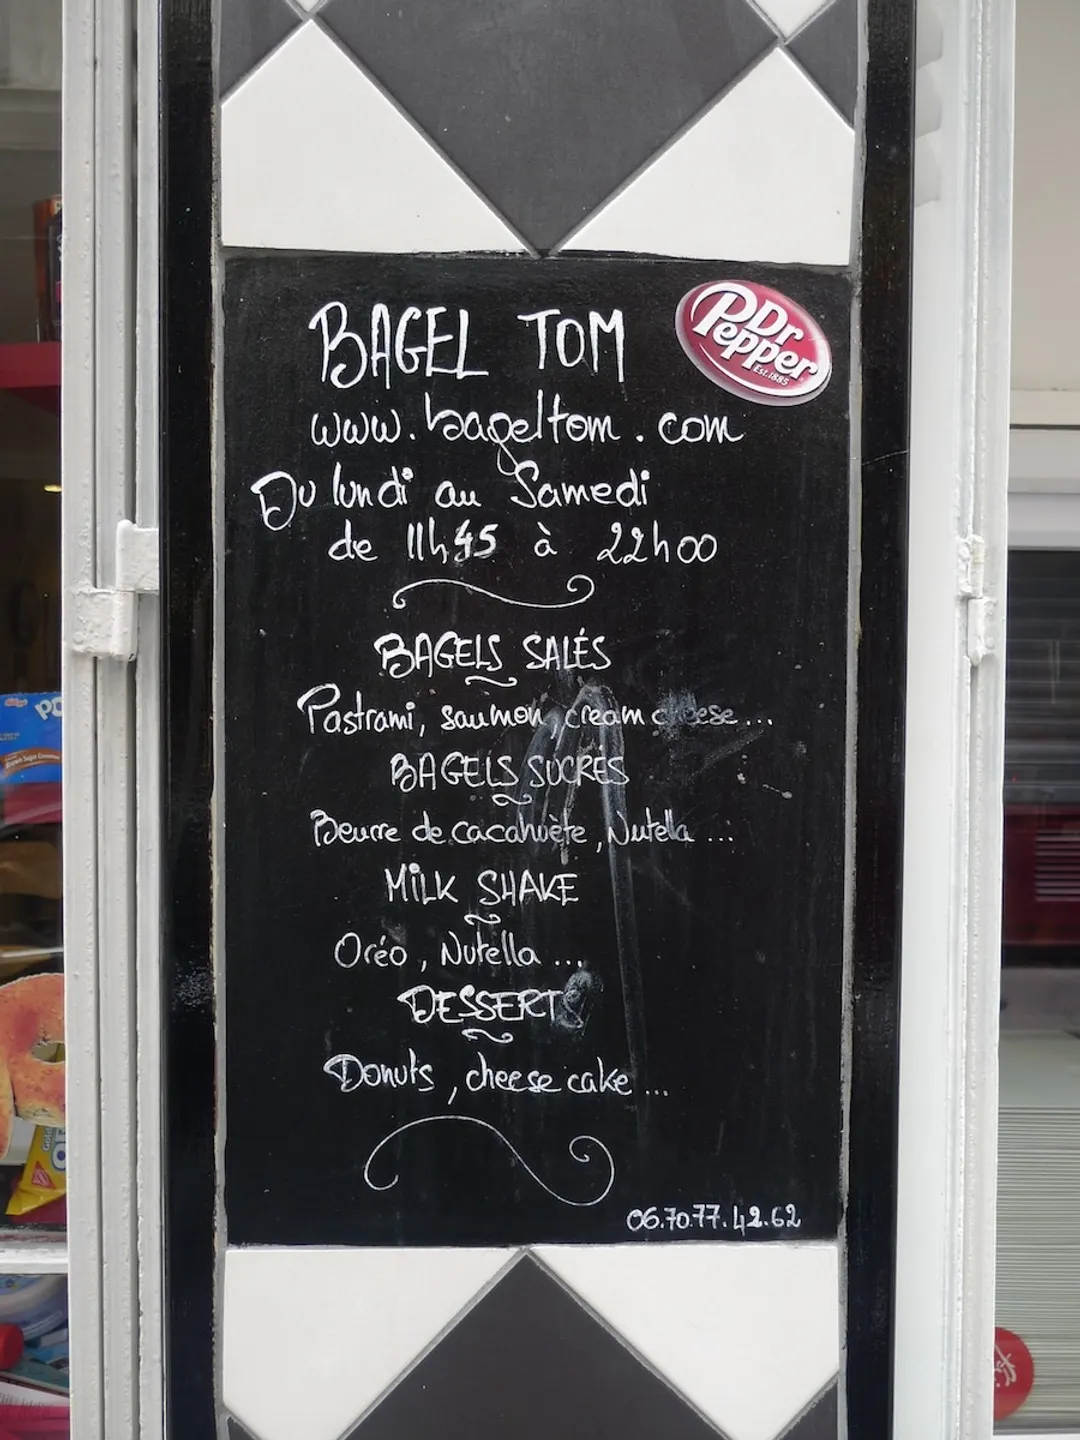 BAGEL TOM
Dr Pepper
Est.1885
www.bageltom.com
Du lundi au Samedi
de 11h45 à 22h00
BAGELS SALÉS
Pastrami, saumon, cream cheese...
BAGELS SUCRÉS
Beurre de cacahuète, Nutella ...
MILK SHAKE
Oréo, Nutella ...
DESSERTS
Donuts, cheese cake ...
06.70.77.42.62